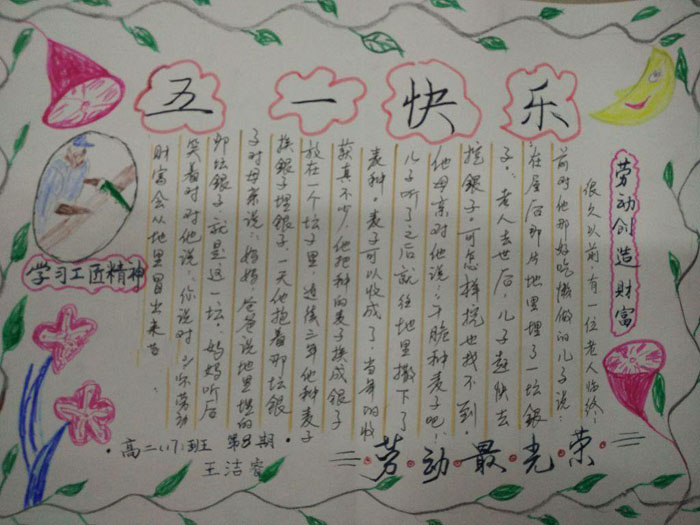 五一快乐
劳动创造财富
很久以前,有一位老人临终
前对他那好吃懒做的儿子说:
在屋后那片地里埋了一坛銀
子。老人去世后,儿子赶快去
挖銀子,可怎样挖也找不到.
他母亲对他说:干脆种麦子吧!
儿子听了之后就往地里撒下了
麦种。麦子可以收成了,当年的收
获真不少,他把种的麦子换成銀子
放在一个坛子里,连续三年他种麦子
换銀子埋銀子.一天他抱着那坛銀
子对母亲说:妈妈,爸爸说地里埋的
那坛銀子就是这一坛.妈妈听后
笑着对对他说:你说对,劳动
财富会从地里冒出来
学习工匠精神
高二(17)班 第8期
王洁睿
劳动最光荣